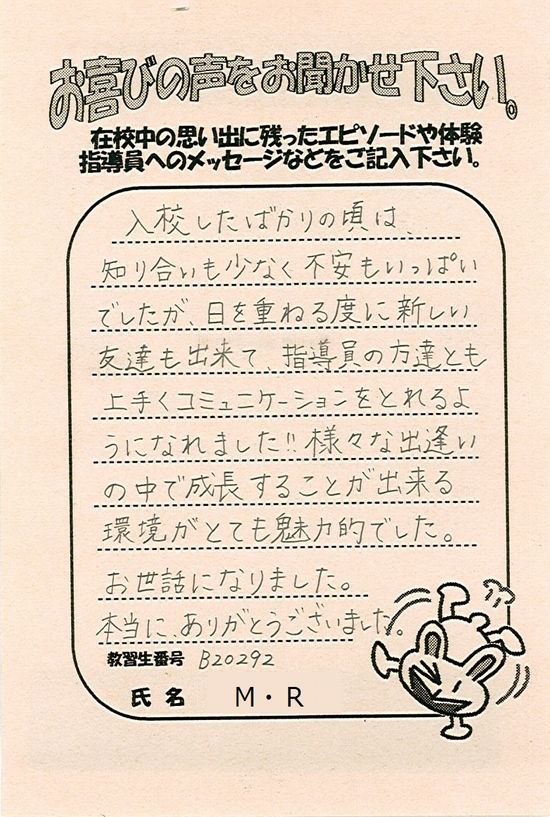 お喜びの声をお聞かせ下さい。
在校中の思い出に残ったエピソードや体験
指導員へのメッセージなどをご記入下さい。
入校したばかりの頃は、
知り合いも少なく不安もいっぱい
でしたが、日を重ねる度に新しい
友達も出来て、指導員の方達とも
上手くコミュニケーションをとれるよ
うになれました!!様々な出逢い
の中で成長することが出来る
環境がとても魅力的でした。
お世話になりました。
本当に、ありがとうございました。
教習生番号 B20292
氏名 M・R